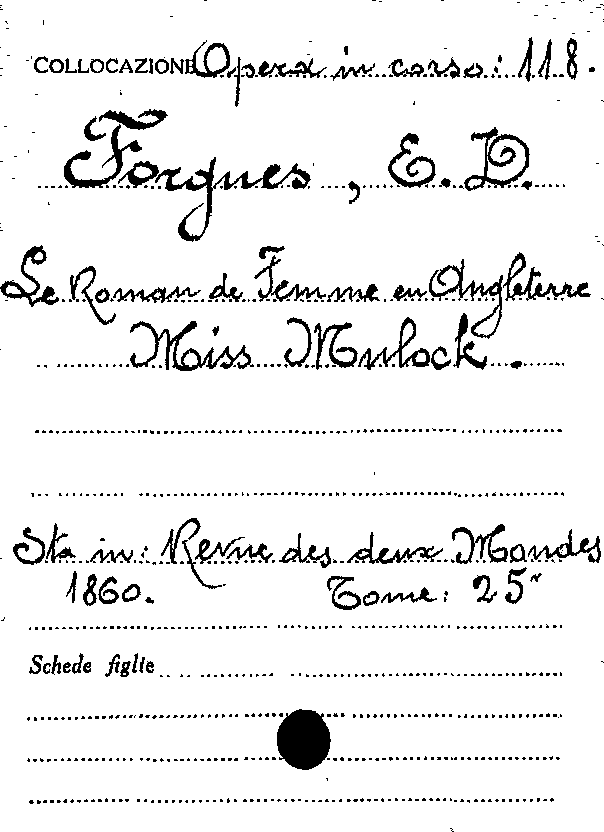 COLLOCAZIONE Opera in corso: 118.
Forgues, E. D.
Le Roman de Femme en Angleterre
Miss Mulock.
Sta in: Revue des deux Mondes
1860. Tome: 25°
Schede figlie